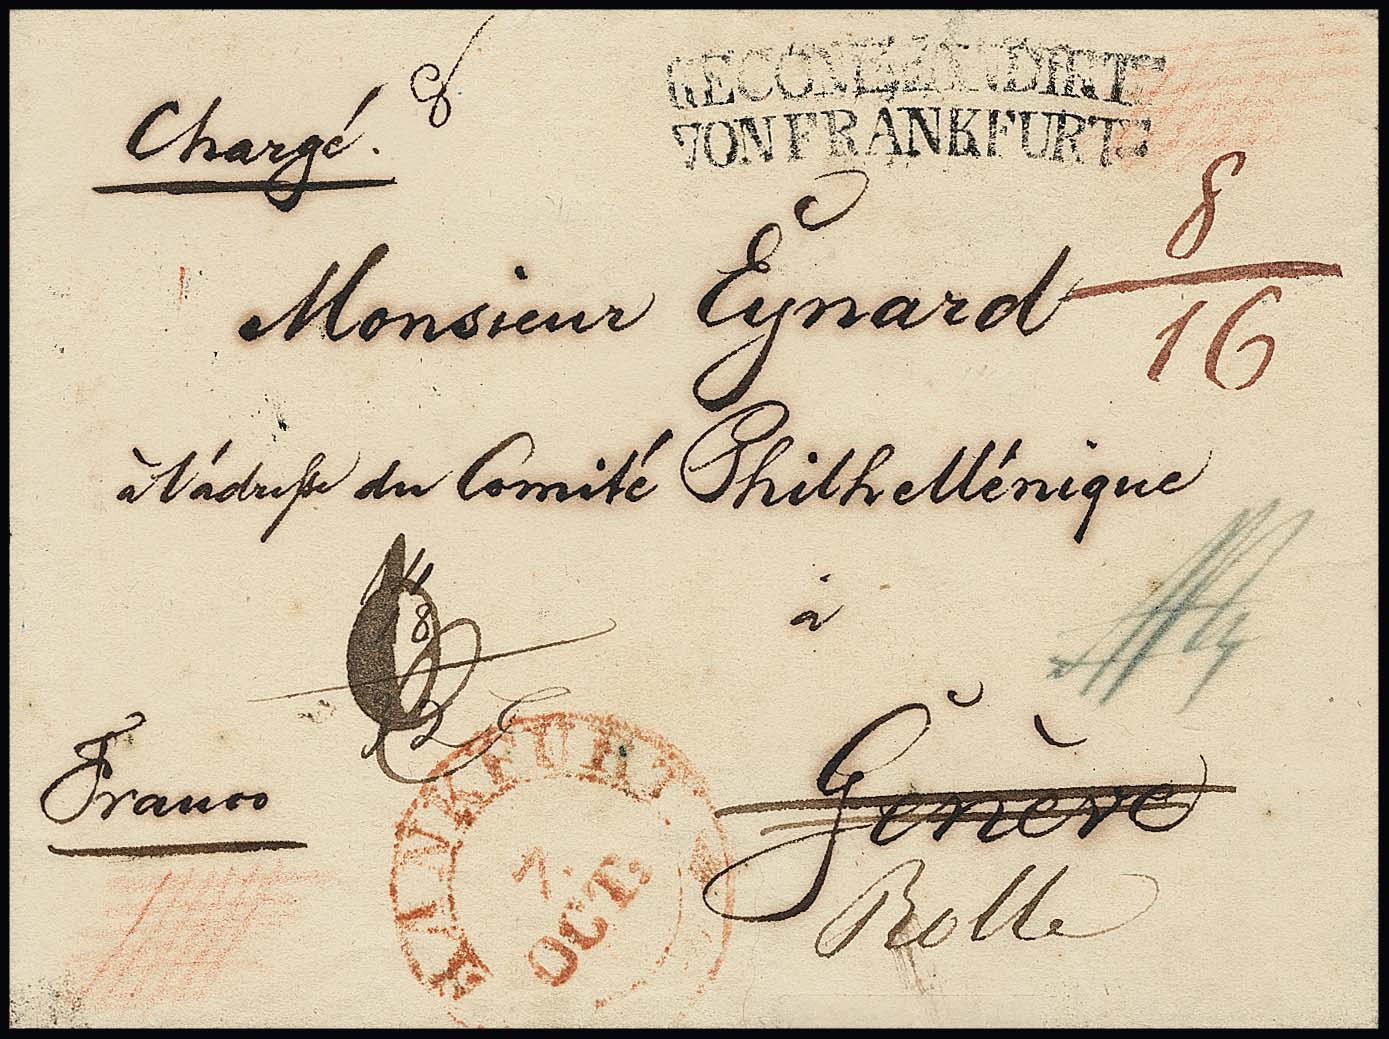 Chargé. 8
RECOMMANDIRT
VON FRANKFURT
8
16
Monsieur Eynard
à l'adresse du Comité Philhellénique
à
Genève
Rolle
Franco
FRANKFURT
7.
OCT.